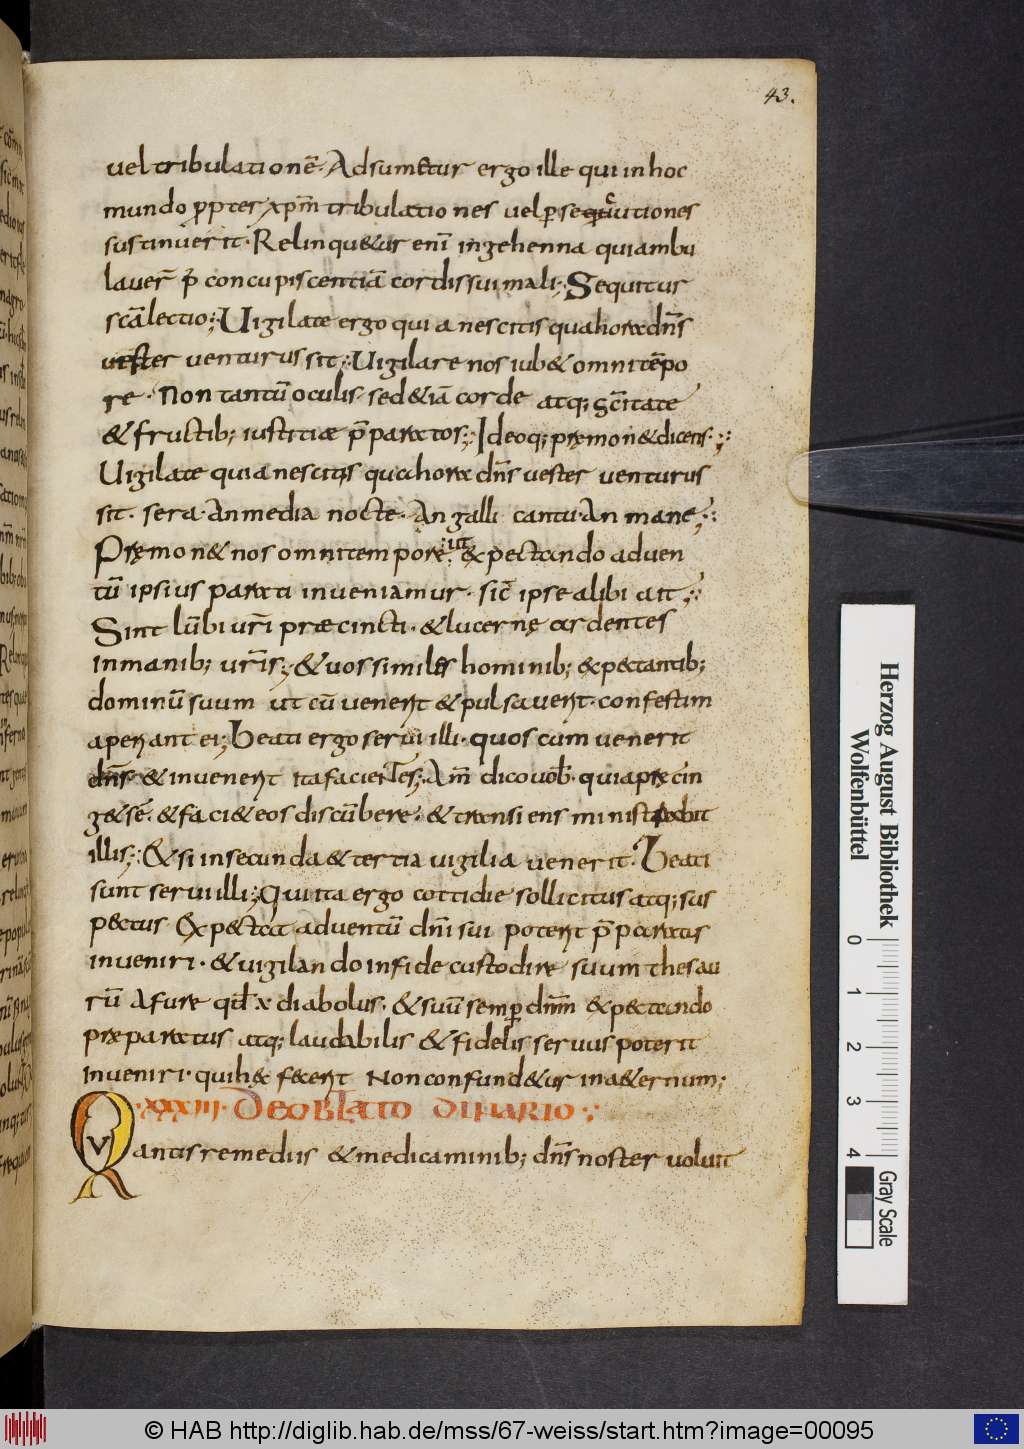 43.
vel tribulationē· Adsumetur ergo ille qui in hoc
mundo ppter xpm̄ tribulationes vel persecutiones
sustinuerit· Relinquetur enī in gehenna qui ambu
lauer̄ p̄ concupiscentiā cordis sui mali·; Sequitur
scā lectio·; Uigilate ergo quia nescitis qua hora dn̄s
uester uenturus sit·: Uigilare nos iubet omni tēpo
re· Non tantū oculis· sed etiā corde atq; sc̄itate
& fructib; iustitiæ p̄paratos·; Ideoq; pręmonet dicens·;
Uigilate quia nescitis qua hora dn̄s uester uenturus
sit· sera· An media nocte· An galli cantu· An mane·;
Pręmonet nos omni tempore· ut expectando aduen
tū ipsius parati inueniamur· sic̄ ipse alibi ait·;
Sint lūbi ur̄i præcincti· & lucernę ardentes
in manib; ur̄is·; & uos similes hominib; expectantib;
dominū suum ut cū venerit & pulsaverit· confestim
aperiant ei·; Beati ergo serui illi· quos cum venerit
dn̄s & invenerit ita facientes·; Am̄ dico vob̄· quia pręcin
get sē· & faciet eos discūbere· & transiens ministrabit
illis·; Et si in secunda & tertia uigilia venerit· Beati
sunt serui illi·; Qui ita ergo cottidie sollicitus atq; sus
pectus expectat adventū dn̄i sui poterit p̄paratus
inveniri· & vigilando in fide custodire suum thesau
rū a fure qd̄ ē diabolus· & suū semp dn̄m expectando
præparatus atq; laudabilis & fidelis servus poterit
inveniri· qui hęc fecerit Non confundetur in aeternum;
XXXIII· De oblato dinario·:
Quantis remediis & medicaminib; dn̄s noster uoluit
Herzog August Bibliothek
Wolfenbüttel
0 1 2 3 4
Gray Scale
© HAB http://diglib.hab.de/mss/67-weiss/start.htm?image=00095